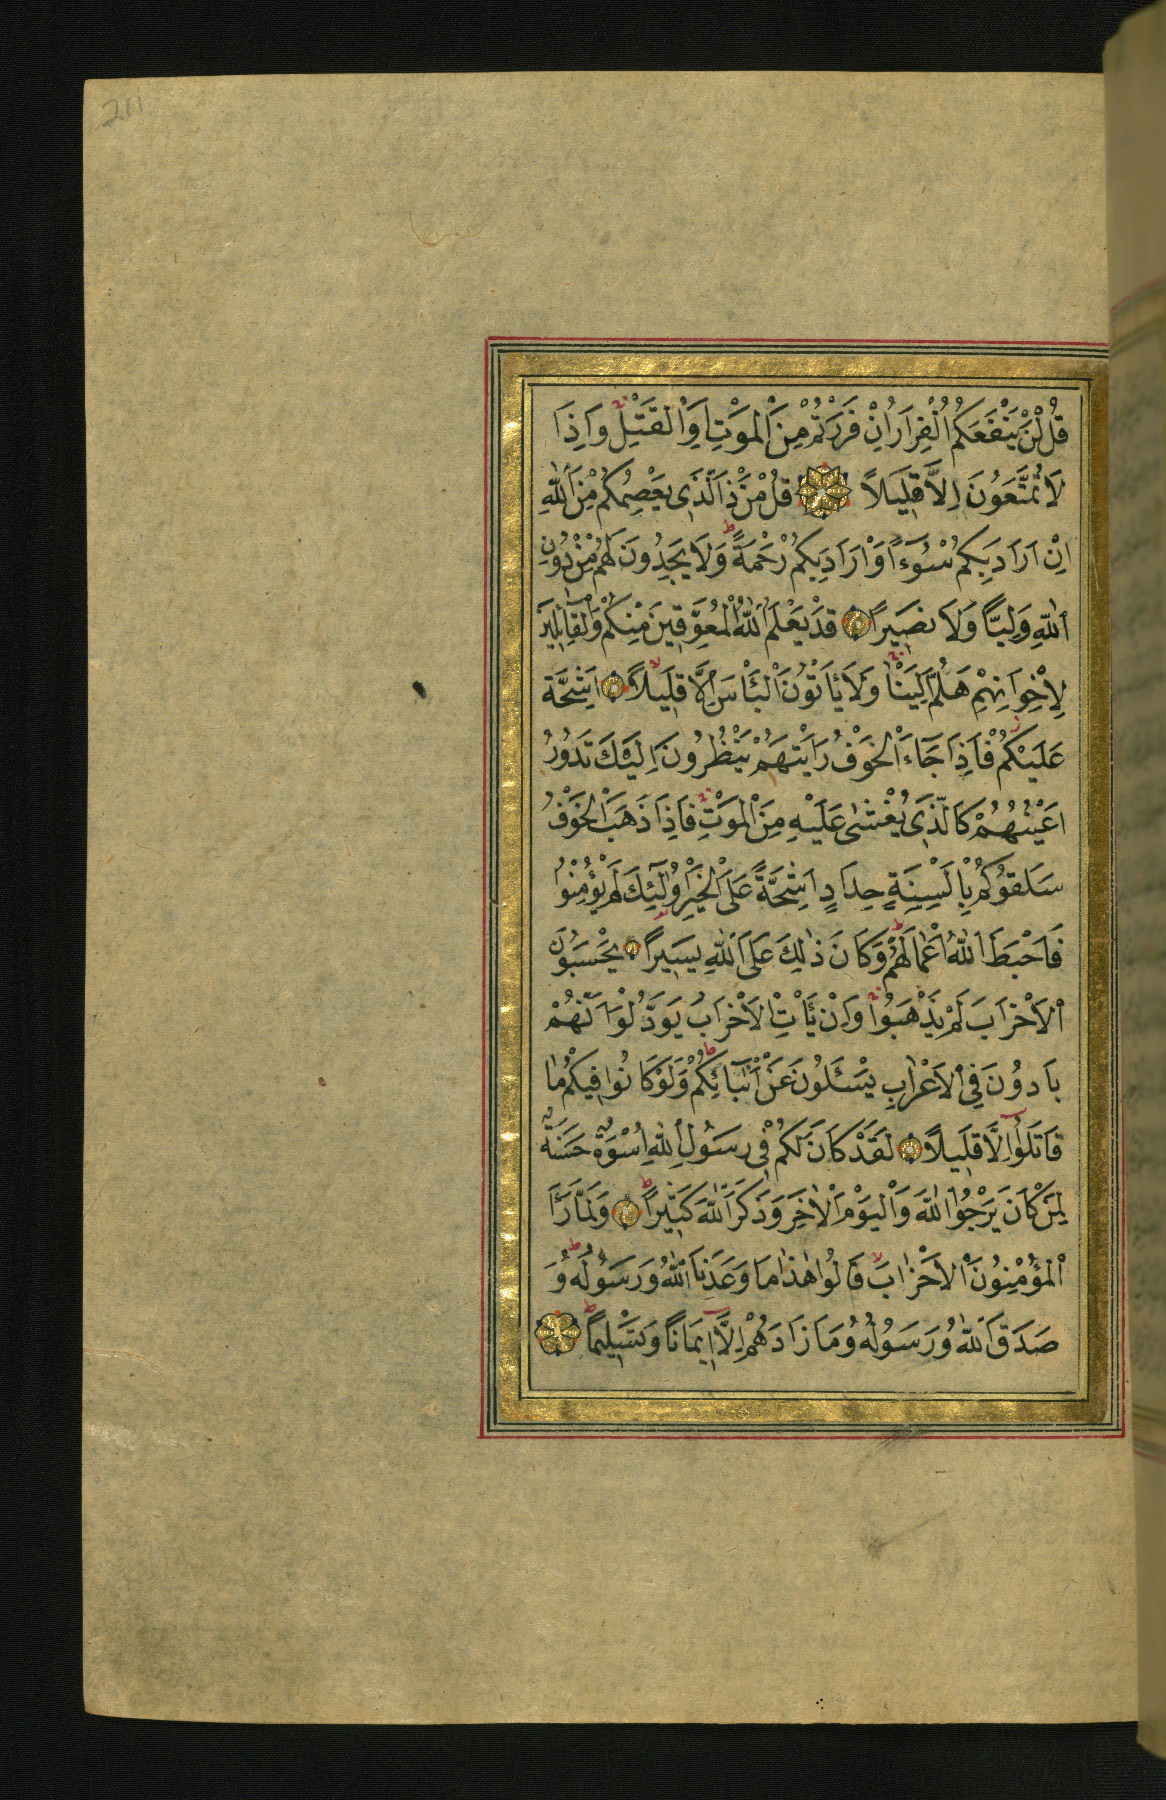 211
قُلْ لَنْ يَنْفَعَكُمُ الْفِرَارُ اِنْ فَرَرْتُمْ مِنَ الْمَوْتِ اَوِ الْقَتْلِ وَاِذًا
لَا تُمَتَّعُونَ اِلَّا قَلِيلًا قُلْ مَنْ ذَا الَّذِى يَعْصِمُكُمْ مِنَ اللّٰهِ
اِنْ اَرَادَ بِكُمْ سُوٓءًا اَوْ اَرَادَ بِكُمْ رَحْمَةً وَلَا يَجِدُونَ لَهُمْ مِنْ دُونِ
اللّٰهِ وَلِيًّا وَلَا نَصِيرًا قَدْ يَعْلَمُ اللّٰهُ الْمُعَوِّقِينَ مِنْكُمْ وَالْقَٓائِلِينَ
لِاِخْوَانِهِمْ هَلُمَّ اِلَيْنَا وَلَا يَأْتُونَ الْبَأْسَ اِلَّا قَلِيلًا اَشِحَّةً
عَلَيْكُمْ فَاِذَا جَٓاءَ الْخَوْفُ رَاَيْتَهُمْ يَنْظُرُونَ اِلَيْكَ تَدُورُ
اَعْيُنُهُمْ كَالَّذِى يُغْشٰى عَلَيْهِ مِنَ الْمَوْتِ فَاِذَا ذَهَبَ الْخَوْفُ
سَلَقُوكُمْ بِاَلْسِنَةٍ حِدَادٍ اَشِحَّةً عَلَى الْخَيْرِ اُولٰٓئِكَ لَمْ يُؤْمِنُوا
فَاَحْبَطَ اللّٰهُ اَعْمَالَهُمْ وَكَانَ ذٰلِكَ عَلَى اللّٰهِ يَسِيرًا يَحْسَبُونَ
الْاَحْزَابَ لَمْ يَذْهَبُوا وَاِنْ يَأْتِ الْاَحْزَابُ يَوَدُّوا لَوْ اَنَّهُمْ
بَادُونَ فِى الْاَعْرَابِ يَسْئَلُونَ عَنْ اَنْبَٓائِكُمْ وَلَوْ كَانُوا فِيكُمْ مَا
قَاتَلُٓوا اِلَّا قَلِيلًا لَقَدْ كَانَ لَكُمْ فِى رَسُولِ اللّٰهِ اُسْوَةٌ حَسَنَةٌ
لِمَنْ كَانَ يَرْجُوا اللّٰهَ وَالْيَوْمَ الْاٰخِرَ وَذَكَرَ اللّٰهَ كَثِيرًا وَلَمَّا رَأَ
الْمُؤْمِنُونَ الْاَحْزَابَ قَالُوا هٰذَا مَا وَعَدَنَا اللّٰهُ وَرَسُولُهُ وَ
صَدَقَ اللّٰهُ وَرَسُولُهُ وَمَا زَادَهُمْ اِلَّا اِيمَانًا وَتَسْلِيمًا